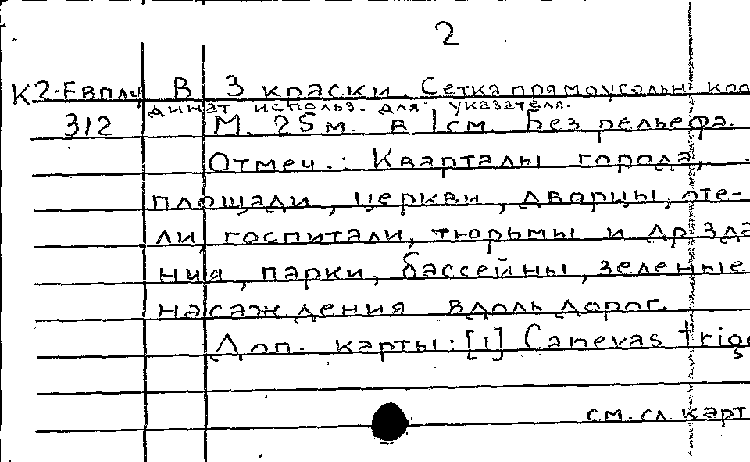 2
К2-Евплч В 3 краски. Сетка прямоусольн коо
динат использ. для указателя.
312 М. 25м. в 1см. Без рельефа.
Отмеч.: Кварталы города,
площади, церкви, дворцы, оте-
ли, госпитали, тюрьмы и др зда
ния, парки, бассейны, зеленые
насаждения вдоль дорог.
Доп. карты: [1] Canevas trigo
см. сл. карт